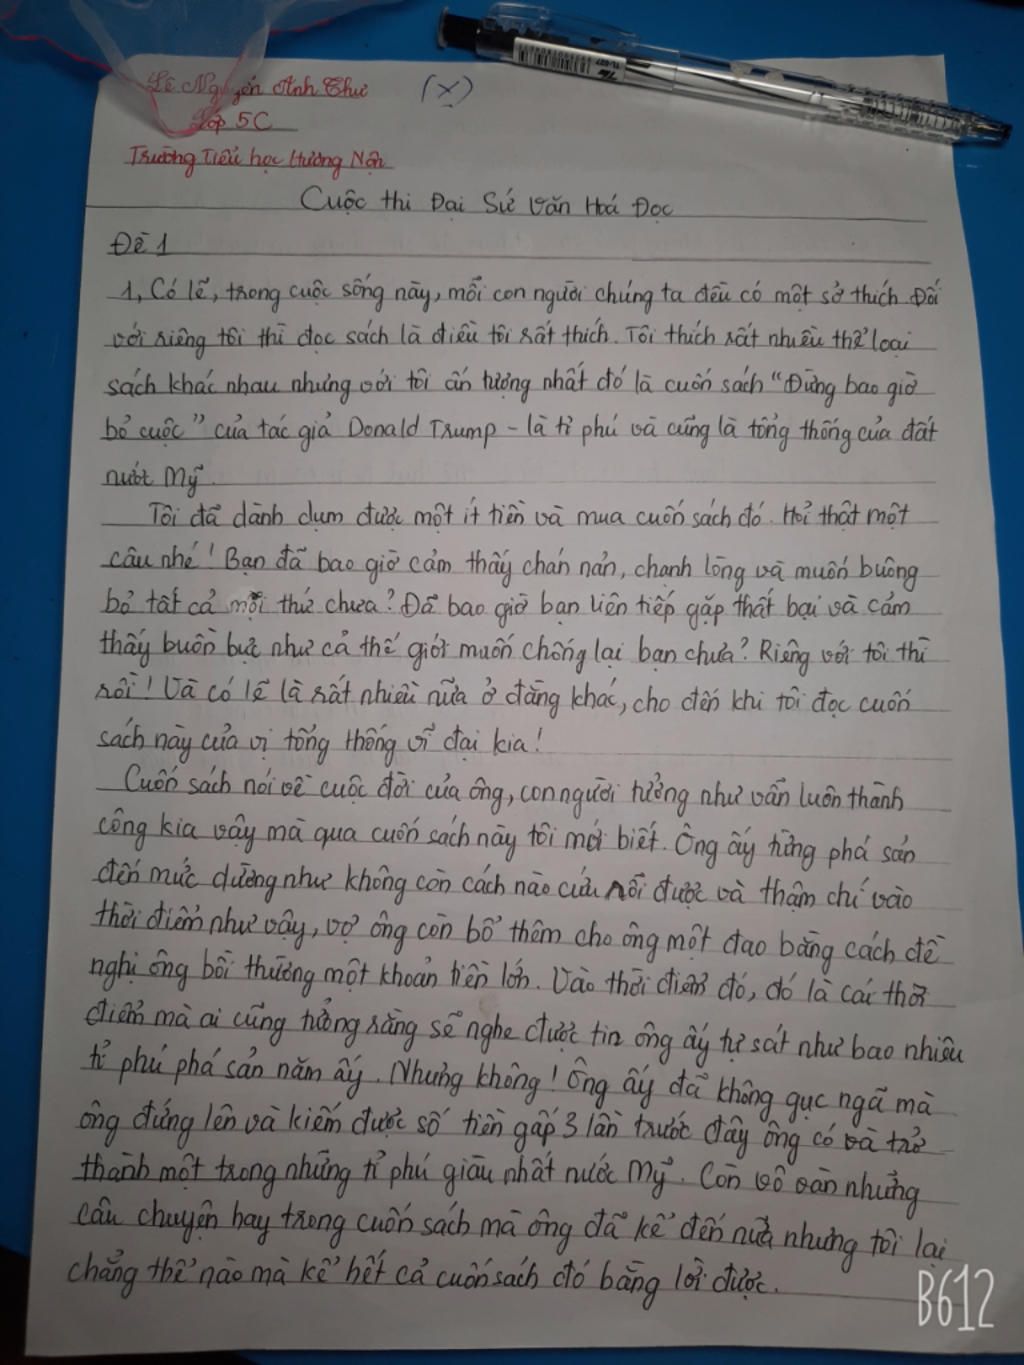 Lê Nguyễn Anh Thư (x)
Lớp 5C
Trường Tiểu học Hương Nộn
Cuộc thi Đại Sứ Văn Hoá Đọc
Đề 1
1, Có lẽ, trong cuộc sống này, mỗi con người chúng ta đều có một sở thích. Đối
với riêng tôi thì đọc sách là điều tôi rất thích. Tôi thích rất nhiều thể loại
sách khác nhau nhưng với tôi ấn tượng nhất đó là cuốn sách "Đừng bao giờ
bỏ cuộc" của tác giả Donald Trump - là tỉ phú và cũng là tổng thống của đất
nước Mỹ.
Tôi đã dành dụm được một ít tiền và mua cuốn sách đó. Hỏi thật một
câu nhé! Bạn đã bao giờ cảm thấy chán nản, chạnh lòng và muốn buông
bỏ tất cả mọi thứ chưa? Đã bao giờ bạn liên tiếp gặp thất bại và cảm
thấy buồn bực như cả thế giới muốn chống lại bạn chưa? Riêng với tôi thì
rồi! Và có lẽ là rất nhiều nữa ở đằng khác, cho đến khi tôi đọc cuốn
sách này của vị tổng thống vĩ đại kia!
Cuốn sách nói về cuộc đời của ông, con người tưởng như vẫn luôn thành
công kia vậy mà qua cuốn sách này tôi mới biết. Ông ấy từng phá sản
đến mức dường như không còn cách nào cứu nổi được và thậm chí vào
thời điểm như vậy, vợ ông còn bồi thêm cho ông một dao bằng cách đề
nghị ông bồi thường một khoản tiền lớn. Vào thời điểm đó, đó là cái thời
điểm mà ai cũng tưởng rằng sẽ nghe được tin ông ấy tự sát như bao nhiêu
tỉ phú phá sản năm ấy. Nhưng không! Ông ấy đã không gục ngã mà
ông đứng lên và kiếm được số tiền gấp 3 lần trước đây ông có và trở
thành một trong những tỉ phú giàu nhất nước Mỹ. Còn vô vàn những
câu chuyện hay trong cuốn sách mà ông đã kể đến nữa nhưng tôi lại
chẳng thể nào mà kể hết cả cuốn sách đó bằng lời được.
B612